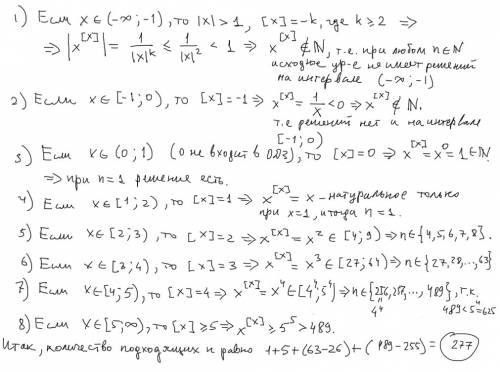 1) Если x∈(-∞;-1), то |x|>1, [x]=-k, где k≥2 ⇒
⇒ |x^[x]| = 1/|x|^k ≤ 1/|x|^2 < 1 ⇒ x^[x] ∉ ℕ, т.е. при любом n∈ℕ
исходное ур-е не имеет решений
на интервале (-∞;-1)
2) Если x∈[-1;0), то [x]=-1 ⇒ x^[x] = 1/x < 0 ⇒ x^[x] ∉ ℕ.
т.е решений нет и на интервале
[-1;0)
3) Если x∈(0;1) (0 не входит в ОДЗ), то [x]=0 ⇒ x^[x] = x^0 = 1 ∈ ℕ
⇒ при n=1 решение есть.
4) Если x∈[1;2), то [x]=1 ⇒ x^[x] = x - натуральное только
при x=1, и тогда n=1.
5) Если x∈[2;3), то [x]=2 ⇒ x^[x] = x^2 ∈ [4;9) ⇒ n∈{4,5,6,7,8}.
6) Если x∈[3;4), то [x]=3 ⇒ x^[x] = x^3 ∈ [27;64) ⇒ n∈{27,28,…,63}
7) Если x∈[4;5), то [x]=4 ⇒ x^[x] = x^4 ∈ [4^4;5^4) ⇒ n∈{256,257,…,489}, т.к.
4^4 489<5^4=625
8) Если x∈[5;∞), то [x]≥5 ⇒ x^[x] ≥ 5^5 > 489.
Итак, количество подходящих n равно 1+5+(63-26)+(489-255)=277